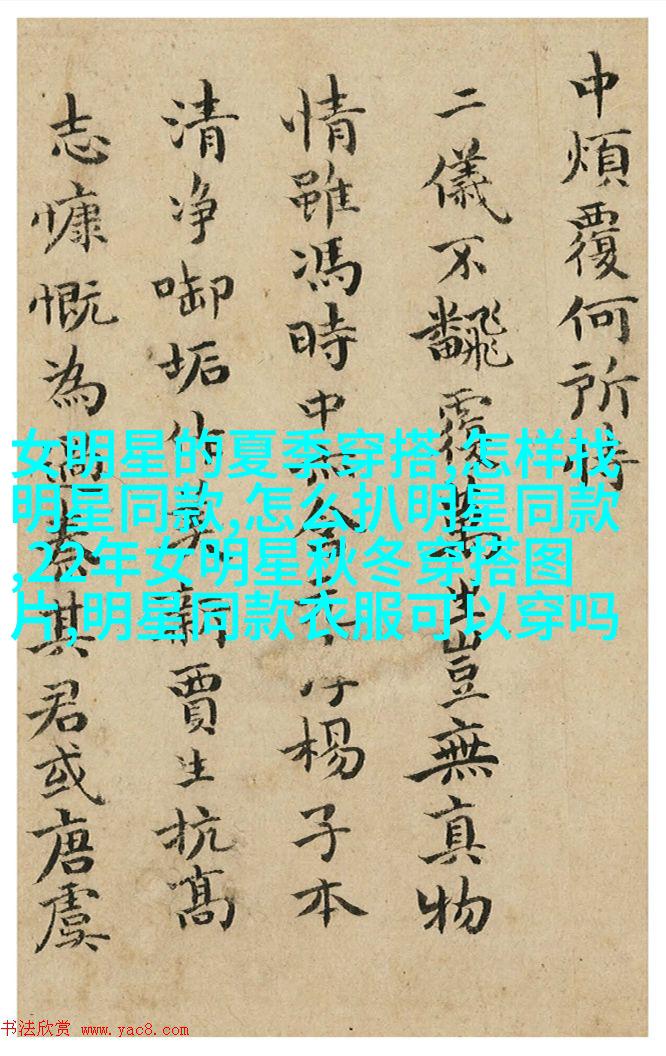 中煩覆何所恃
二儀不飜覆萬生豈無真物
情雖馮時中
楊子本
清净啣垢
新賈生抗髙
志慷慨為
其君或唐虞
女明星的夏季穿搭,怎样找
明星同款,怎么扒明星同款
,22年女明星秋冬穿搭图
片,明星同款衣服可以穿吗
书法欣赏 www.yac8.com